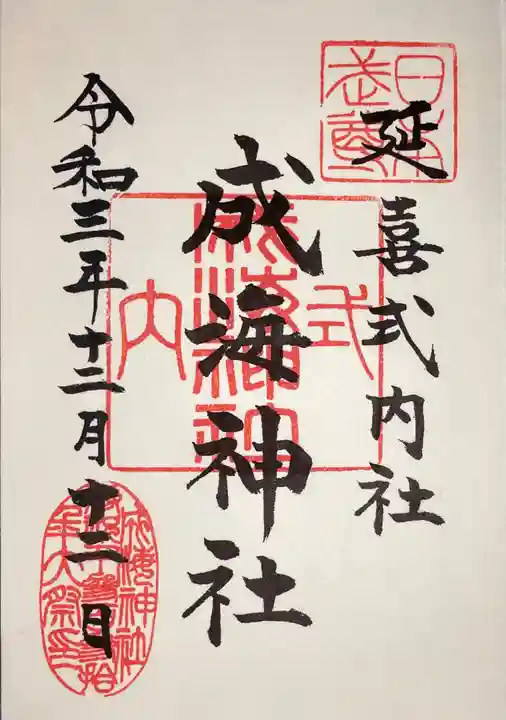 延喜式内社
日本武尊
成海神社
式内成海神社
令和三年十二月十二日
成海神社